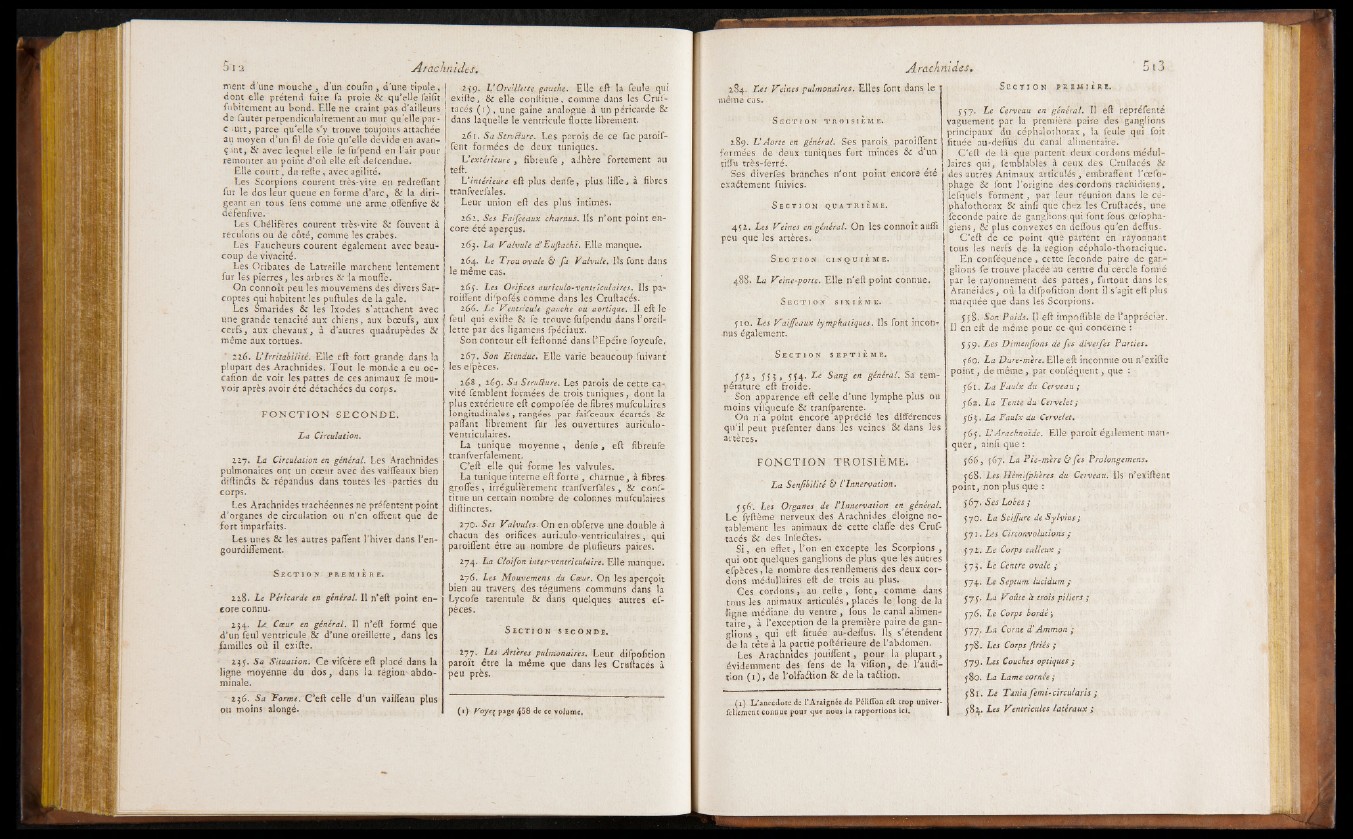 512
Arachnides.
ment d'une mouche, d'un coufin, d'une tipule,
dont elle prétend faire fa proie & qu'elle faifit
fubitement au bond. Elle ne craint pas d'ailleurs
de fauter perpendiculairement au mur qu'elle par-
court, parce qu'elle s'y trouve toujours attachée
au moyen d'un fil de foie qu'elle dévide en avan-
çant, & avec lequel elle fe fufpend en l'air pour
remonter au point d'où elle eft defcendue.
Elle court, du refte, avec agilité.
Les Scorpions courent très-vite en redreffant
fur le dos leur queue en forme d'arc, & la diri-
geant en tous fens comme une arme offenfive &
défenfive.
Les Chélifères courent très-vite & fouvent à
reculons ou de côté, comme les crabes.
Les Faucheurs courent également avec beau-
coup de vivacité.
Les Oribates de Latreille marchent lentement
fur les pierres, les arbres & la mouffe.
On connoît peu les mouvemens des divers Sar-
coptes qui habitent les puftules de la gale.
Les Smarides & les Ixodes s'attachent avec
une grande tenacité aux chiens, aux bœufs, aux
cerfs, aux chevaux, à d'autres quadrupèdes &
même aux tortues.
226. L'Irritabilité. Elle eft fort grande dans la
plupart des Arachnides. Tout le monde a eu oc-
cafion de voir les pattes de ces animaux fe mou-
voir après avoir été détachées du corps.
FONCTION SECONDE.
La Circulation.
227. La Circulation en général. Les Arachnides
pulmonaires ont un cœur avec des vaiffeaux bien
diftincts & répandus dans toutes les parties du
corps.
Les Arachnides trachéennes ne préfentent point
d'organes de circulation ou n'en offrent que de
fort imparfaits.
Les unes & les autres paffent l'hiver dans l'en-
gourdiffement.
SECTION PREMIÈRE.
228. Le Péricarde en général. Il n'eft point en-
core connu.
234. Le Cœur en général. Il n'eft formé que
d'un feul ventricule & d'une oreillette, dans les
familles où il exifte.
235. Sa Situation. Ce vifcère eft placé dans la
ligne moyenne du dos, dans la région abdo-
minale.
236. Sa Forme. C'eft celle d'un vaiffeau plus
ou moins alongé.
259. L'Oreillette gauche. Elle eft la feule qui
exifte, & elle conftitue, comme dans les Cruf-
tacés (1), une gaîne analogue à un péricarde &
dans laquelle le ventricule flotte librement.
261. Sa Structure. Les parois de ce fac paroif-
fent formées de deux tuniques.
L'extérieure, fibreufe, adhère fortement au
teft.
L'intérieure eft plus denfe, plus liffe, à fibres
tranfverfales.
Leur union eft des plus intimes.
262. Ses Faifceaux charnus. Ils n'ont point en-
core été aperçus.
263. La Valvule d'Euftachi. Elle manque.
264. Le Trou ovale & fa Valvule. Ils font dans
le même cas.
265. Les Orifices auriculo-ventriculaires. Ils pa-
roiffent difpofés comme dans les Cruftacés.
266. Le Ventricule gauche ou aortique. Il eft le
feul qui exifte & fe trouve fufpendu dans l'oreil-
lette par des ligamens fpéciaux.
Son contour eft feftonné dans l'Epeïre foyeufe.
267. Son Etendue. Elle varie beaucoup fuivant
les efpèces.
268, 269. Sa Structure. Les parois de cette ca-
vité femblent formées de trois tuniques, dont la
plus extérieure eft compofée de fibres mufculaires
longitudinales, rangées par faifceaux écartés &
paffant librement fur les ouvertures auriculo-
ventriculaires.
La tunique moyenne, denfe, eft fibreufe
tranfverfalement.
C'eft elle qui forme les valvules.
La tunique interne eft forte, charnue, à fibres
groffes, irrégulièrement tranfverfales, & conf-
titue un certain nombre de colonnes mufculaires
diftinctes.
270. Ses Valvules. On en obferve une double à
chacun des orifices auriculo-ventriculaires, qui
paroiffent être au nombre de plufieurs paires.
274. La Cloifon inter-ventriculaire. Elle manque.
276. Les Mouvemens du Cœur. On les aperçoit
bien au travers des tégumens communs dans la
Lycofe tarentule & dans quelques autres ef-
pèces.
SECTION SECONDE.
277. Les Artères pulmonaires. Leur difpofition
paroît être la même que dans les Cruftacés à
peu près.
(1) Voyez page 458 de ce volume.
Arachnides.
513
284. Les Veines pulmonaires. Elles font dans le
même cas.
SECTION TROISIÈME.
289. L'Aorte en général. Ses parois paroiffent
formées de deux tuniques fort minces & d'un
tiffu très-ferré.
Ses diverfes branches n'ont point encore été
exactement fuivies.
SECTION QUATRIÈME.
452. Les Veines en général. On les connoît auffi
peu que les artères.
SECTION CINQUIÈME.
488. La Veine-porte. Elle n'eft point connue.
SECTION SIXIÈME.
510. Les Vaiffeaux lymphatiques. Ils font incon-
nus également.
SECTION SEPTIÈME.
552, 553, 554. Le Sang en général. Sa tem-
pérature eft froide.
Son apparence eft celle d'une lymphe plus ou
moins vifqueufe & tranfparente.
On n'a point encore apprécié les différences
qu'il peut préfenter dans les veines & dans les
artères.
FONCTION TROISIÈME.
La Senfibilité & l'Innervation.
556. Les Organes de l'Innervation en général.
Le fyftème nerveux des Arachnides éloigne no-
tablement les animaux de cette claffe des Cruf-
tacés & des Infectes.
Si, en effet, l'on en excepte les Scorpions,
qui ont quelques ganglions de plus que les autres
efpèces, le nombre des renflemens des deux cor-
dons médullaires eft de trois au plus.
Ces cordons, au refte, font, comme dans
tous les animaux articulés, placés le long de la
ligne médiane du ventre, fous le canal alimen-
taire, à l'exception de la première paire de gan-
glions, qui eft fituée au-deffus. Ils s'étendent
de la tête à la partie poftérieure de l'abdomen.
Les Arachnides jouiffent, pour la plupart,
évidemment des fens de la vifion, de l'audi-
tion (1), de l'olfaction & de la taction.
(1) L'anecdote de l'Araignée de Péliffon eft trop univer-
fellement connue pour que nous la rapportions ici.
SECTION PREMIÈRE.
557. Le Cerveau en général. Il eft repréfenté
vaguement par la première paire des ganglions
principaux du céphalothorax, la feule qui foit
fituée au-deffus du canal alimentaire.
C'eft de là que partent deux cordons médul-
laires qui, femblables à ceux des Cruftacés &
des autres Animaux articulés, embraffent l'œfo-
phage & font l'origine des cordons rachidiens,
lefquels forment, par leur réunion dans le cé-
phalothorax & ainfi que chez les Cruftacés, une
feconde paire de ganglions qui font fous œfopha-
giens, & plus convexes en deffous qu'en deffus.
C'eft de ce point que partent en rayonnant
tous les nerfs de la région céphalo-thoracique.
En conféquence, cette feconde paire de gan-
glions fe trouve placée au centre du cercle formé
par le rayonnement des pattes, furtout dans les
Araneïdes, où la difpofition dont il s'agit eft plus
marquée que dans les Scorpions.
558. Son Poids. Il eft impoffible de l'apprécier.
Il en eft de même pour ce qui concerne :
559. Les Dimenfions de fes diverfes Parties.
560. La Dure-mère. Elle eft inconnue ou n'exifte
point, de même, par conféquent, que :
561. La Faulx du Cerveau ;
562. La Tente du Cervelet ;
563. La Faulx du Cervelet.
565. L'Arachnoïde. Elle paroît également man-
quer, ainfi que :
566, 567. La Pie-mère & fes Prolongemens.
568. Les Hémifphères du Cerveau. Ils n'exiftent
point, non plus que :
567. Ses Lobes ;
570. La Sciffure de Sylvius ;
571. Les Circonvolutions ;
572. Le Corps calleux ;
573. Le Centre ovale ;
574. Le Septum lucidum ;
575. La Voûte à trois piliers ;
576. Le Corps bordé ;
577. La Corne d'Ammon ;
578. Les Corps ftriés ;
579. Les Couches optiques ;
580. La Lame cornée ;
581. Le Tænia femi-circularis ;
582. Les Ventricules latéraux ;